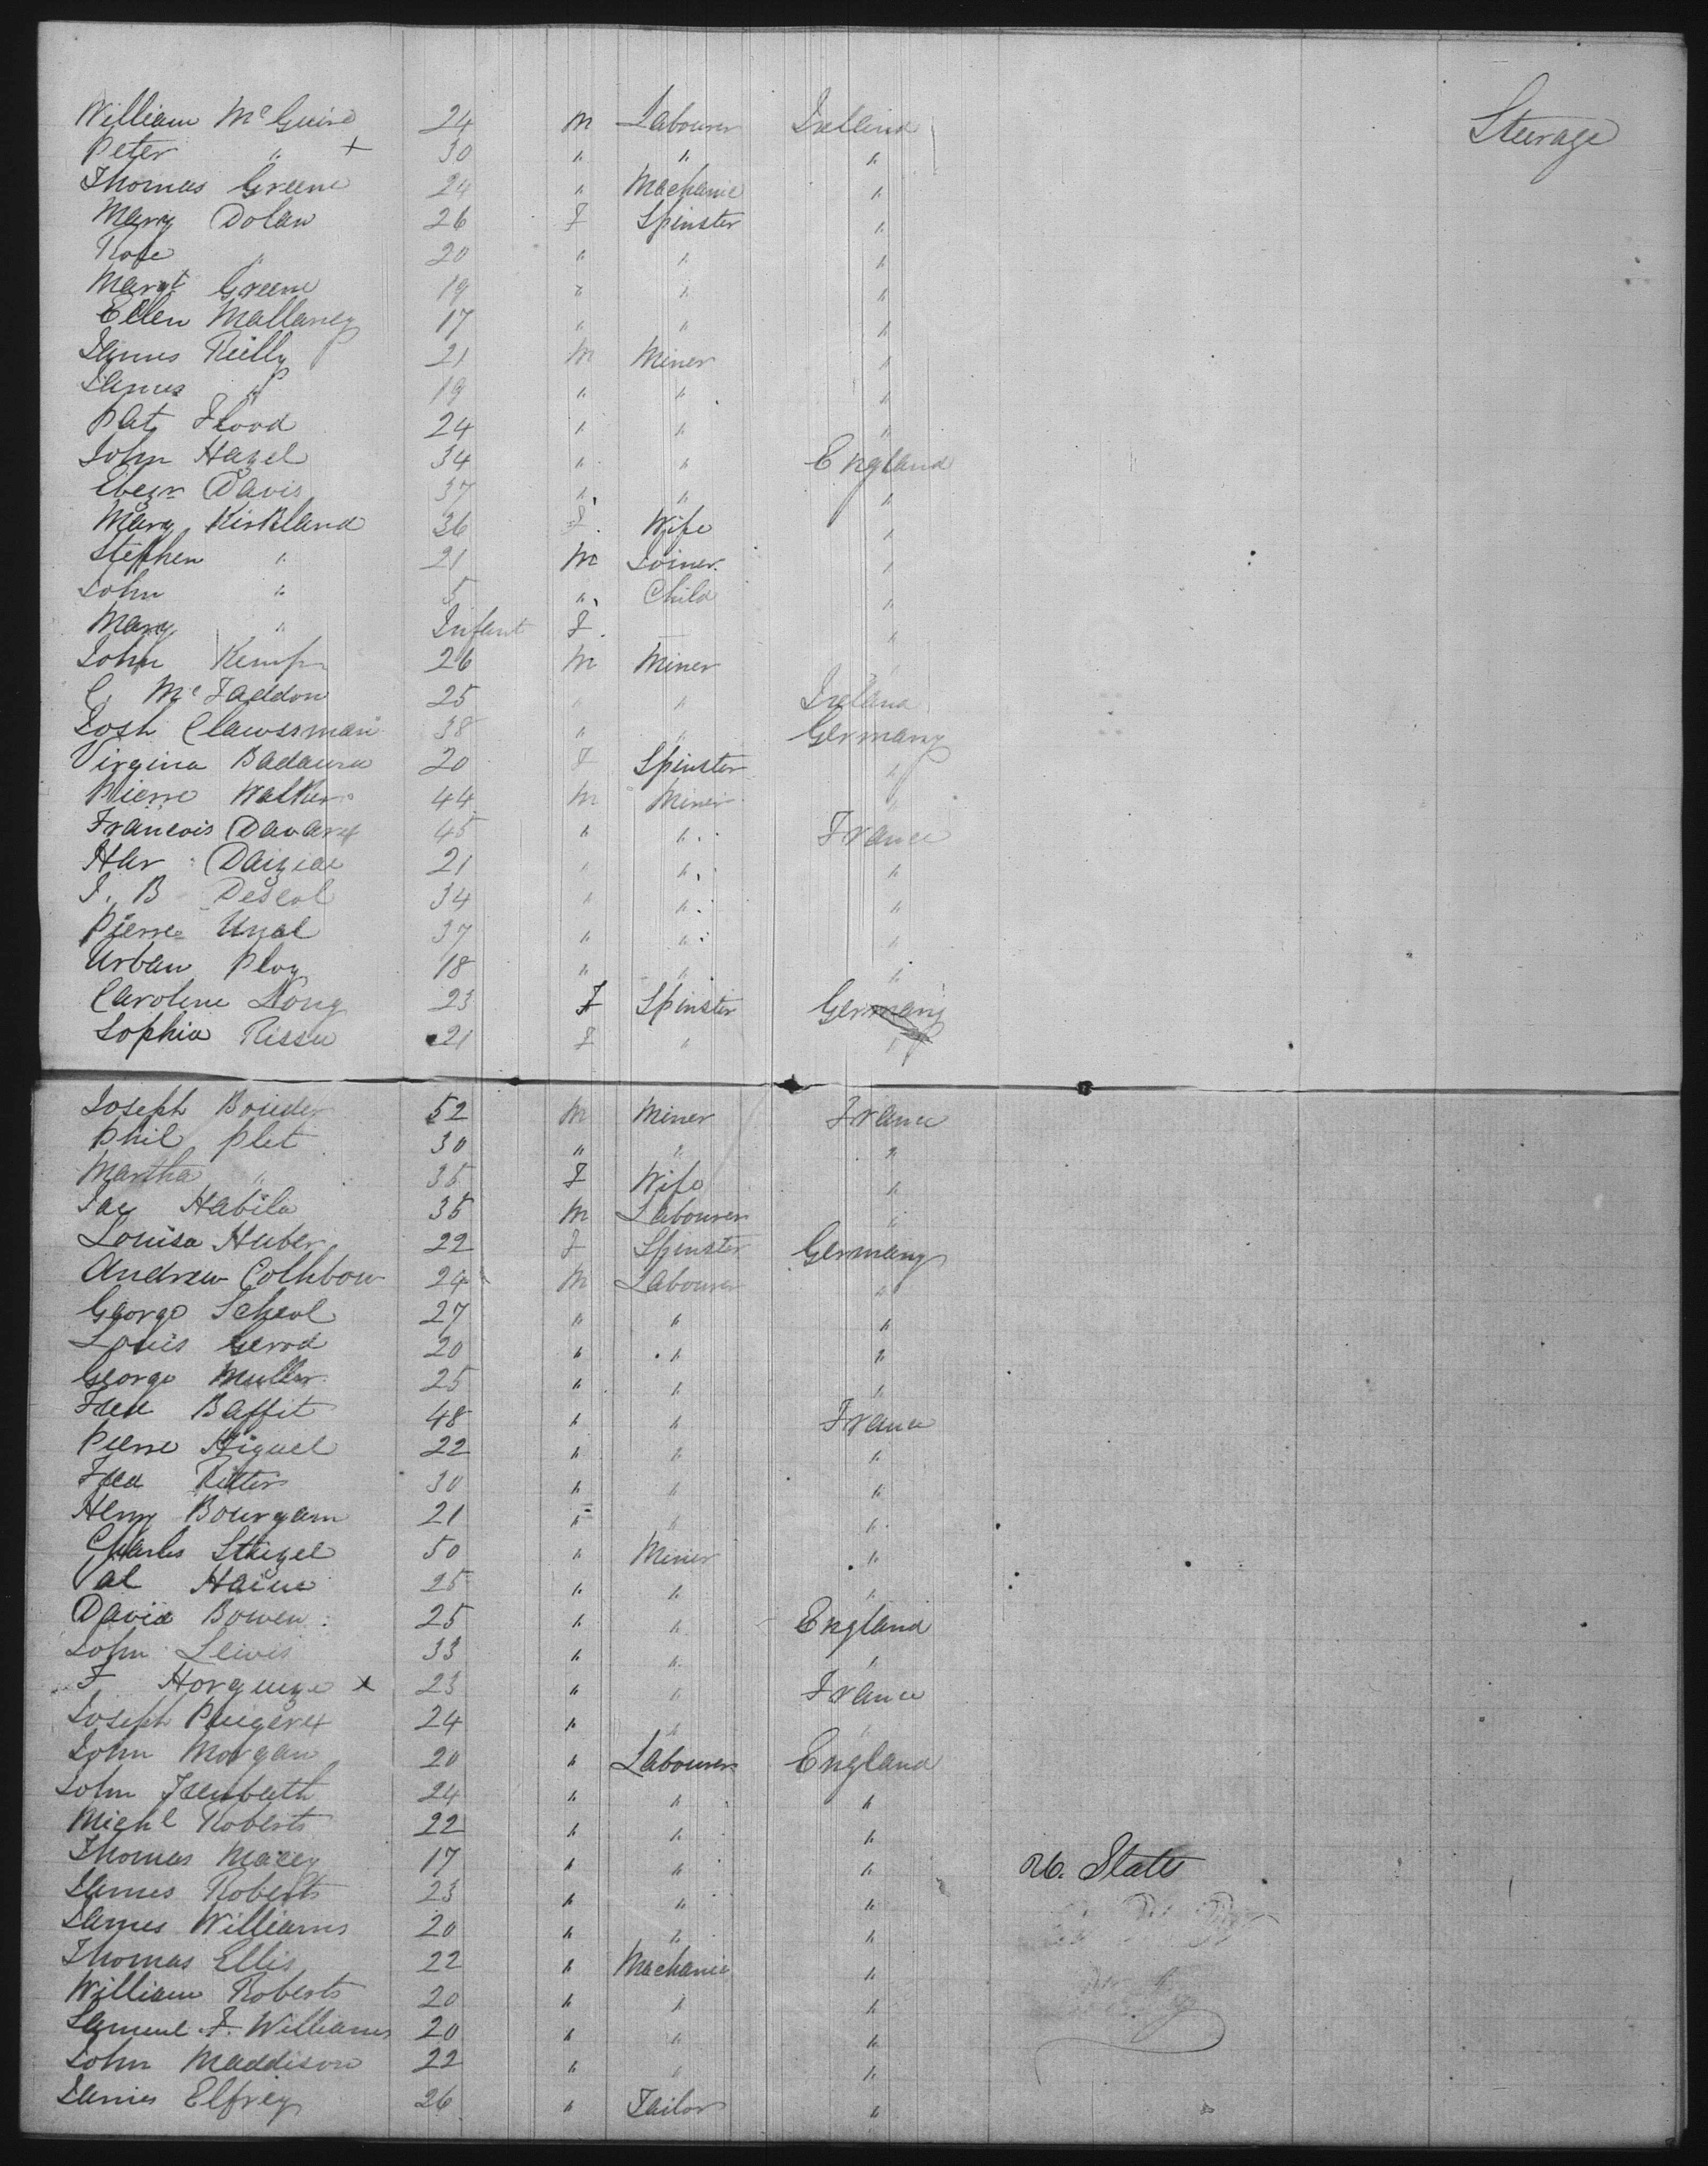 William McGuire 24 M Labourer Ireland Steerage
Peter " + 30 " " "
Thomas Greene 24 " Mechanic "
Mary Dolan 26 F Spinster "
Rose " 20 " " "
Margt Greene 19 " " "
Ellen Mallaney 17 " " "
James Reilly 21 M Miner "
James " 19 " " "
Pat Flood 24 " " "
John Hazel 34 " " England
Ebezr Davis 37 " " "
Mary Kirkland 36 F. Wife "
Stephen " 21 M Joiner "
John " 5 " Child "
Mary " Infant F. "
John Kemp 26 M Miner "
C. McFaddon 25 " " Ireland
Josh Clawssman 38 " " Germany
Virgina 20 F Spinster "
Pierre Walker 44 M Miner "
Francois 45 " " France
21 " " "
J. B Descol 34 " " "
Pierre Unal 37 " " "
Urban Ploy 18 " " "
Caroline Long 23 F Spinster Germany
Sophia 21 F " "
Joseph 52 M Miner France
Phil Plet 30 " " "
Martha " 35 F Wife "
Jac Habila 35 M Labourer "
Louisa Huber 22 F Spinster Germany
Andrew 24 M Labourer "
George Scheol 27 " " "
Louis Gerod 20 " " "
George Muller 25 " " "
Baffit 48 " " France
Pierre Higuel 22 " " "
Fred Ritter 30 " " "
Henry Bourgam 21 " " "
Charles Steigel 50 " Miner "
Val Haine 25 " " "
David Bowen 25 " " England
John Lewis 33 " " "
F x 23 " " France
Joseph 24 " " "
John Morgan 20 " Labourer England
John 24 " " "
Michl Roberts 22 " " "
Thomas Macey 17 " " " U. States
James Roberts 23 " " "
James Williams 20 " " "
Thomas Ellis 22 " Mechanic "
William Roberts 20 " " "
Samuel F. Williams 20 " " "
John Maddison 22 " " "
James Elfrey 26 " Tailor "